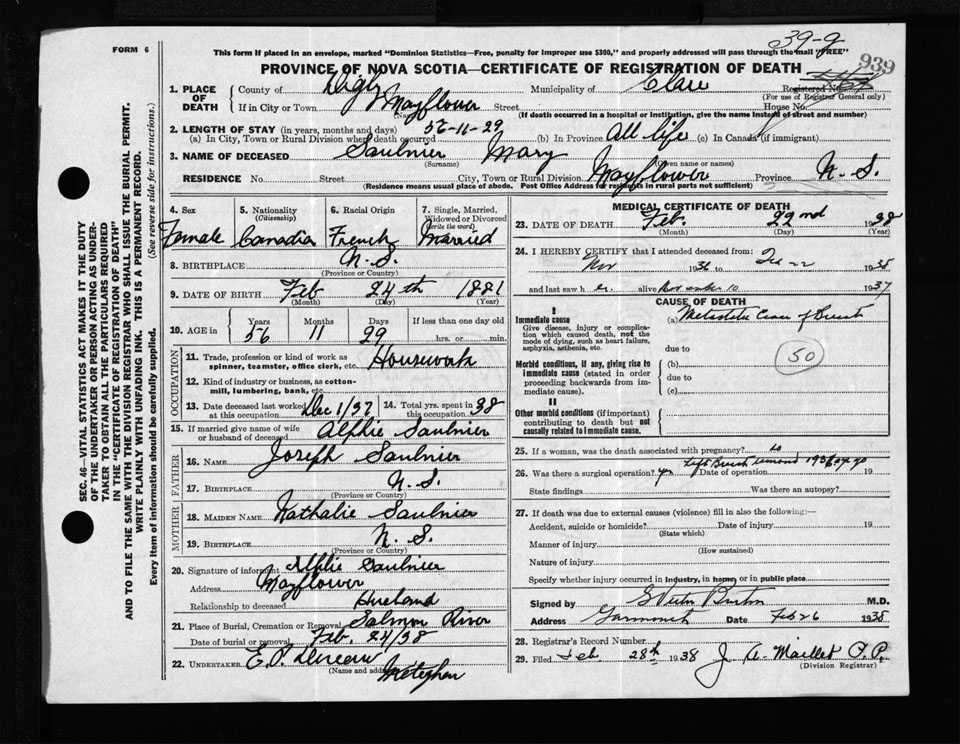 39-g
939
FORM 6
This form if placed in an envelope, marked "Dominion Statistics—Free, penalty for improper use $300," and properly addressed will pass through the mail "FREE"
PROVINCE OF NOVA SCOTIA—CERTIFICATE OF REGISTRATION OF DEATH
Registered No.
(For use of Registrar General only)
1. PLACE OF DEATH County of Digby Municipality of Clare
If in City or Town Mayflower Street House No.
(If death occurred in a hospital or institution, give the name instead of street and number)
2. LENGTH OF STAY (in years, months and days)
(a) In City, Town or Rural Division where death occurred 56-11-29 (b) In Province All life (c) In Canada (if immigrant)
3. NAME OF DECEASED Saulnier Mary
(Surname) (Given name or names)
RESIDENCE No. Street City, Town or Rural Division Mayflower Province N. S.
(Residence means usual place of abode. Post Office Address for residents in rural parts not sufficient)
4. Sex 5. Nationality (Citizenship) 6. Racial Origin 7. Single, Married, Widowed or Divorced (write the word)
Female Canadia French Married
8. BIRTHPLACE N. S.
(Province or Country)
9. DATE OF BIRTH Feb 24th 1881
(Month) (Day) (Year)
10. AGE in Years Months Days If less than one day old
56 11 29 hrs. or min.
OCCUPATION
11. Trade, profession or kind of work as spinner, teamster, office clerk, etc. Housework
12. Kind of industry or business, as cotton-mill, lumbering, bank, etc.
13. Date deceased last worked at this occupation Dec 1/37 14. Total yrs. spent in this occupation 38
15. If married give name of wife or husband of deceased Alphie Saulnier
FATHER
16. NAME Joseph Saulnier
17. BIRTHPLACE N. S.
(Province or Country)
MOTHER
18. MAIDEN NAME Nathalie Saulnier
19. BIRTHPLACE N. S.
(Province or Country)
20. Signature of informant Alphie Saulnier
Address Mayflower
Relationship to deceased Husband
21. Place of Burial, Cremation or Removal Salmon River
Date of burial or removal Feb. 24/38
22. UNDERTAKER E. P.
(Name and address) Meteghan
MEDICAL CERTIFICATE OF DEATH
23. DATE OF DEATH Feb 22nd 1938
(Month) (Day) (Year)
24. I HEREBY CERTIFY that I attended deceased from:
Nov 1936 to Feb 22 1938
and last saw her alive November 10 1937
CAUSE OF DEATH
I
Immediate cause
Give disease, injury or complication which caused death, not the mode of dying, such as heart failure, asphyxia, asthenia, etc.
(a) Metastatic Cancer of Breast
due to
50
Morbid conditions, if any, giving rise to immediate cause (stated in order proceeding backwards from immediate cause).
(b)
due to
(c)
II
Other morbid conditions (if important) contributing to death but not causally related to immediate cause.
25. If a woman, was the death associated with pregnancy? No
26. Was there a surgical operation? yes Date of operation Left Breast removed 1936 19
State findings Was there an autopsy?
27. If death was due to external causes (violence) fill in also the following:—
Accident, suicide or homicide? Date of injury 19
(State which)
Manner of injury
(How sustained)
Nature of injury
Specify whether injury occurred in industry, in home, or in public place
Signed by Burton M.D.
Address Yarmouth Date Feb 26 1938
28. Registrar's Record Number
29. Filed Feb 28th 1938 J. A. Maillet P. P.
(Division Registrar)
SEC. 46—VITAL STATISTICS ACT MAKES IT THE DUTY
OF THE UNDERTAKER OR PERSON ACTING AS UNDER-
TAKER TO OBTAIN ALL THE PARTICULARS REQUIRED
IN THE "CERTIFICATE OF REGISTRATION OF DEATH"
AND TO FILE THE SAME WITH THE DIVISION REGISTRAR WHO SHALL ISSUE THE BURIAL PERMIT.
WRITE PLAINLY WITH UNFADING INK. THIS IS A PERMANENT RECORD.
Every item of information should be carefully supplied. (See reverse side for instructions.)